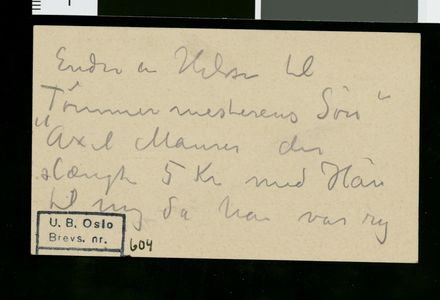 Endnu en Hilsen til
"Tømmermesterens Søn"
Axel Maurer der
slængte 5 Kr med Haan
til mig da han var rig
U. B. Oslo
Brevs. nr.
604